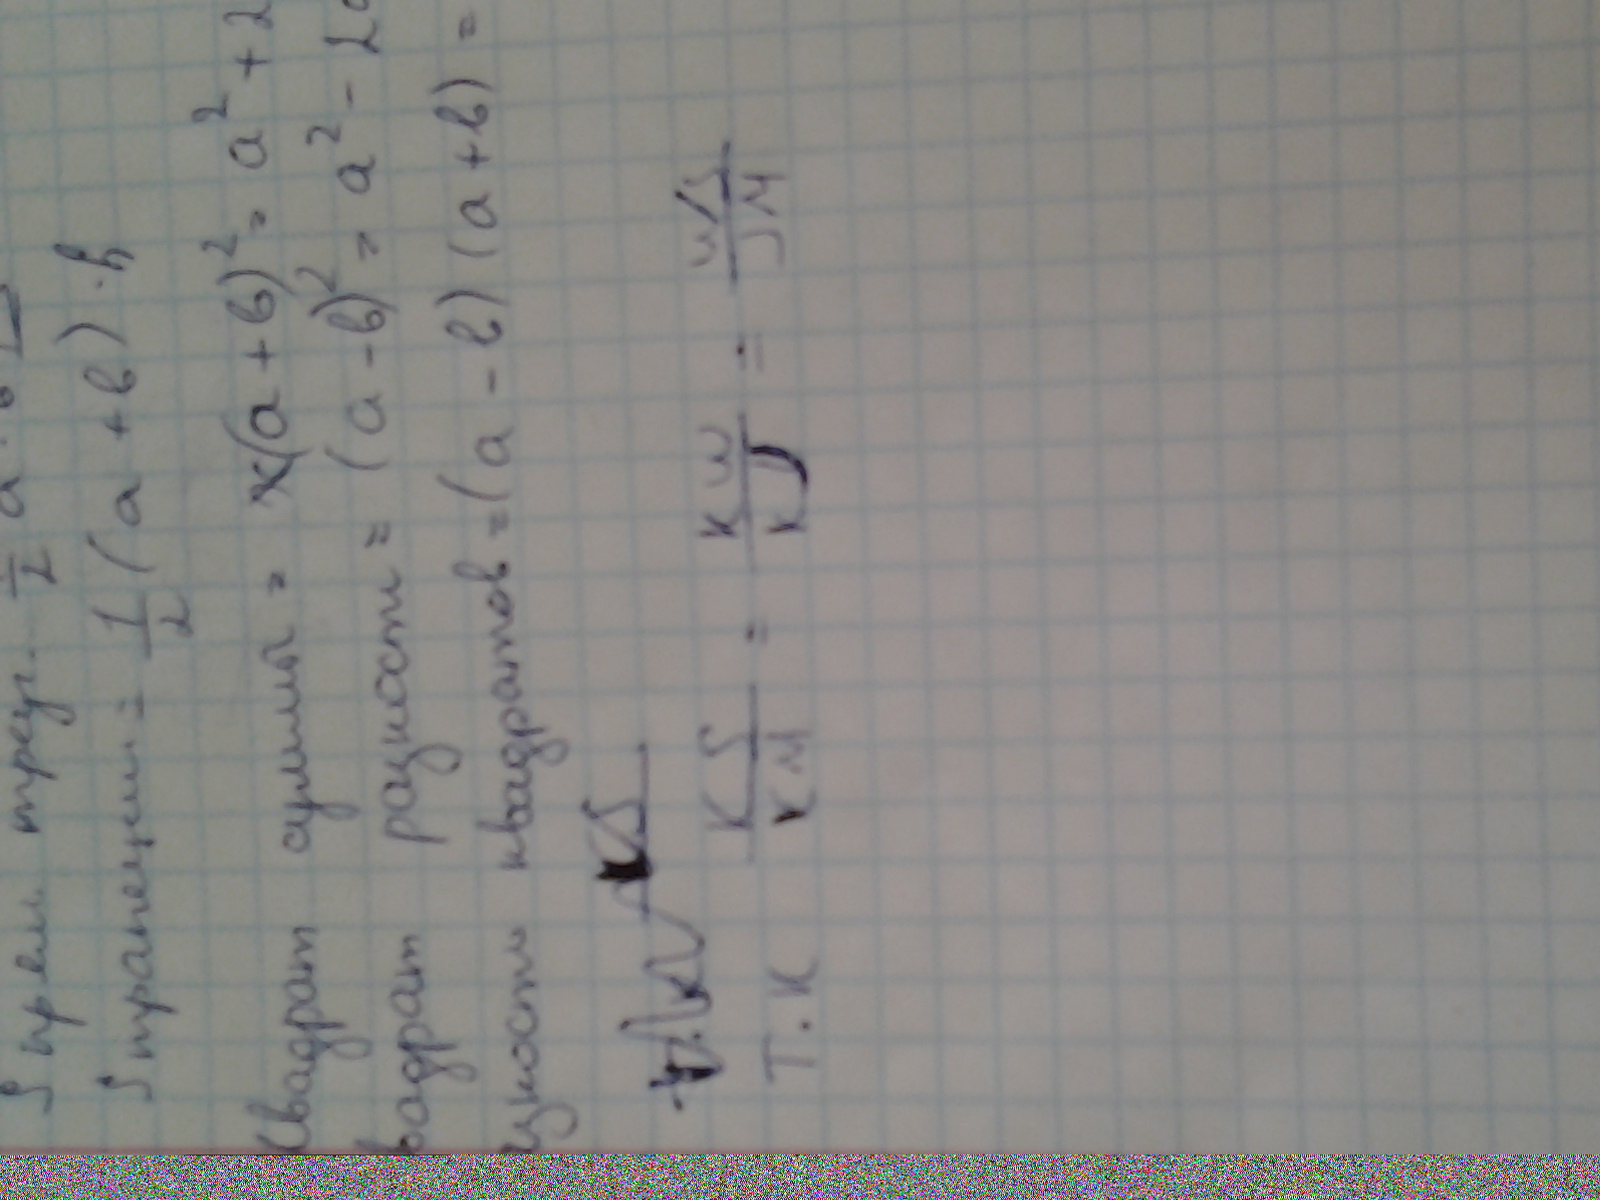 S прям треуг. 1/2 a · в
S трапеции = 1/2 (a + в) · h
Квадрат суммы = (a + в)² = a² + 2
вадрат разности = (a - в)² = a² - 2a
зность квадратов = (a - в) (a + в) =
KS
Т.К KS/KM = KW/KJ = WS/JM